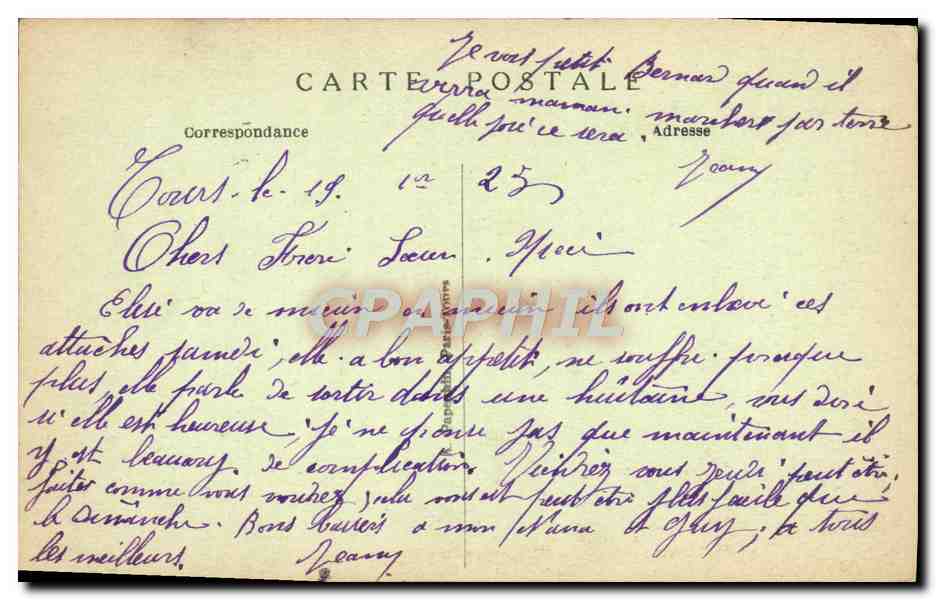 Je vois petit Bernar quand il
CARTE POSTALE
verra maman marcher par terre
quelle joie ce sera.
Correspondance
Adresse
Jeany
Tours le 19. 1er 25
Chers Frère Soeur
Elise va de mieux en mieux ils ont enlevé ces
attaches samedi, elle a bon appetit, ne souffre presque
plus, elle parle de sortir dans une huitaine, vous dire
si elle est heureuse, je ne pense pas que maintenant il
y est beaucoup de complication. Viendrez vous jeudi peut être,
faites comme vous voudrez, cela vous est peut être plus facile que
le dimanche. Bons baisers a mon Nana et Guy, a tous
les meilleurs. Jeany
CPAPHIL